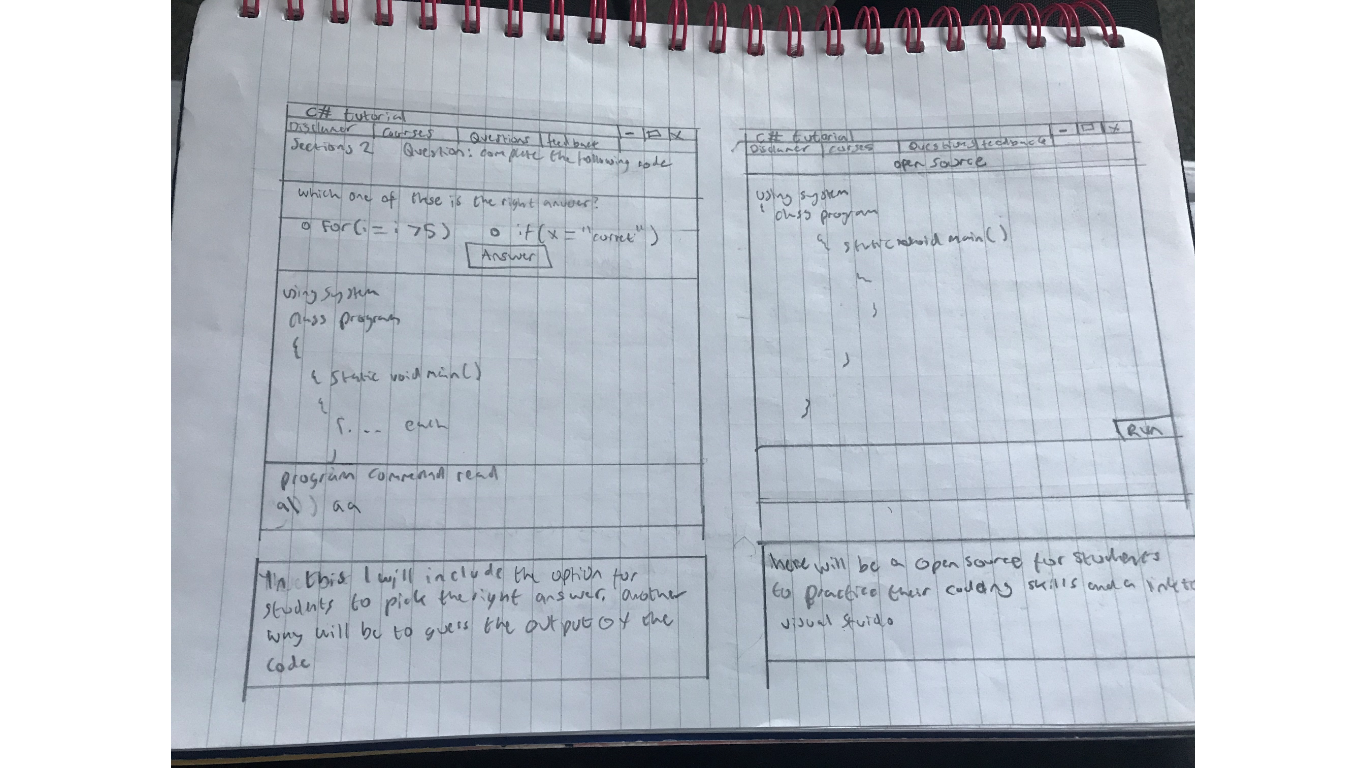 C# tutorial
Disclumer Courses Questions feedback - □ x
Sections 2 Question: compute the following code
which one of these is the right answer?
o For(i = i >5) o if(x = "corret")
Answer
using system
class program
{
{ static void main()
{
}
program command read
aa
In this I will include the option for
students to pick the right answer. another
way will be to guess the output of the
code
C# tutorial - □ x
Disclumer curses Questions feedback
open source
using system
{ class program
{ static void main()
}
}
}
Run
here will be a open source for students
to practice their codding skills and a link to
visual stuido